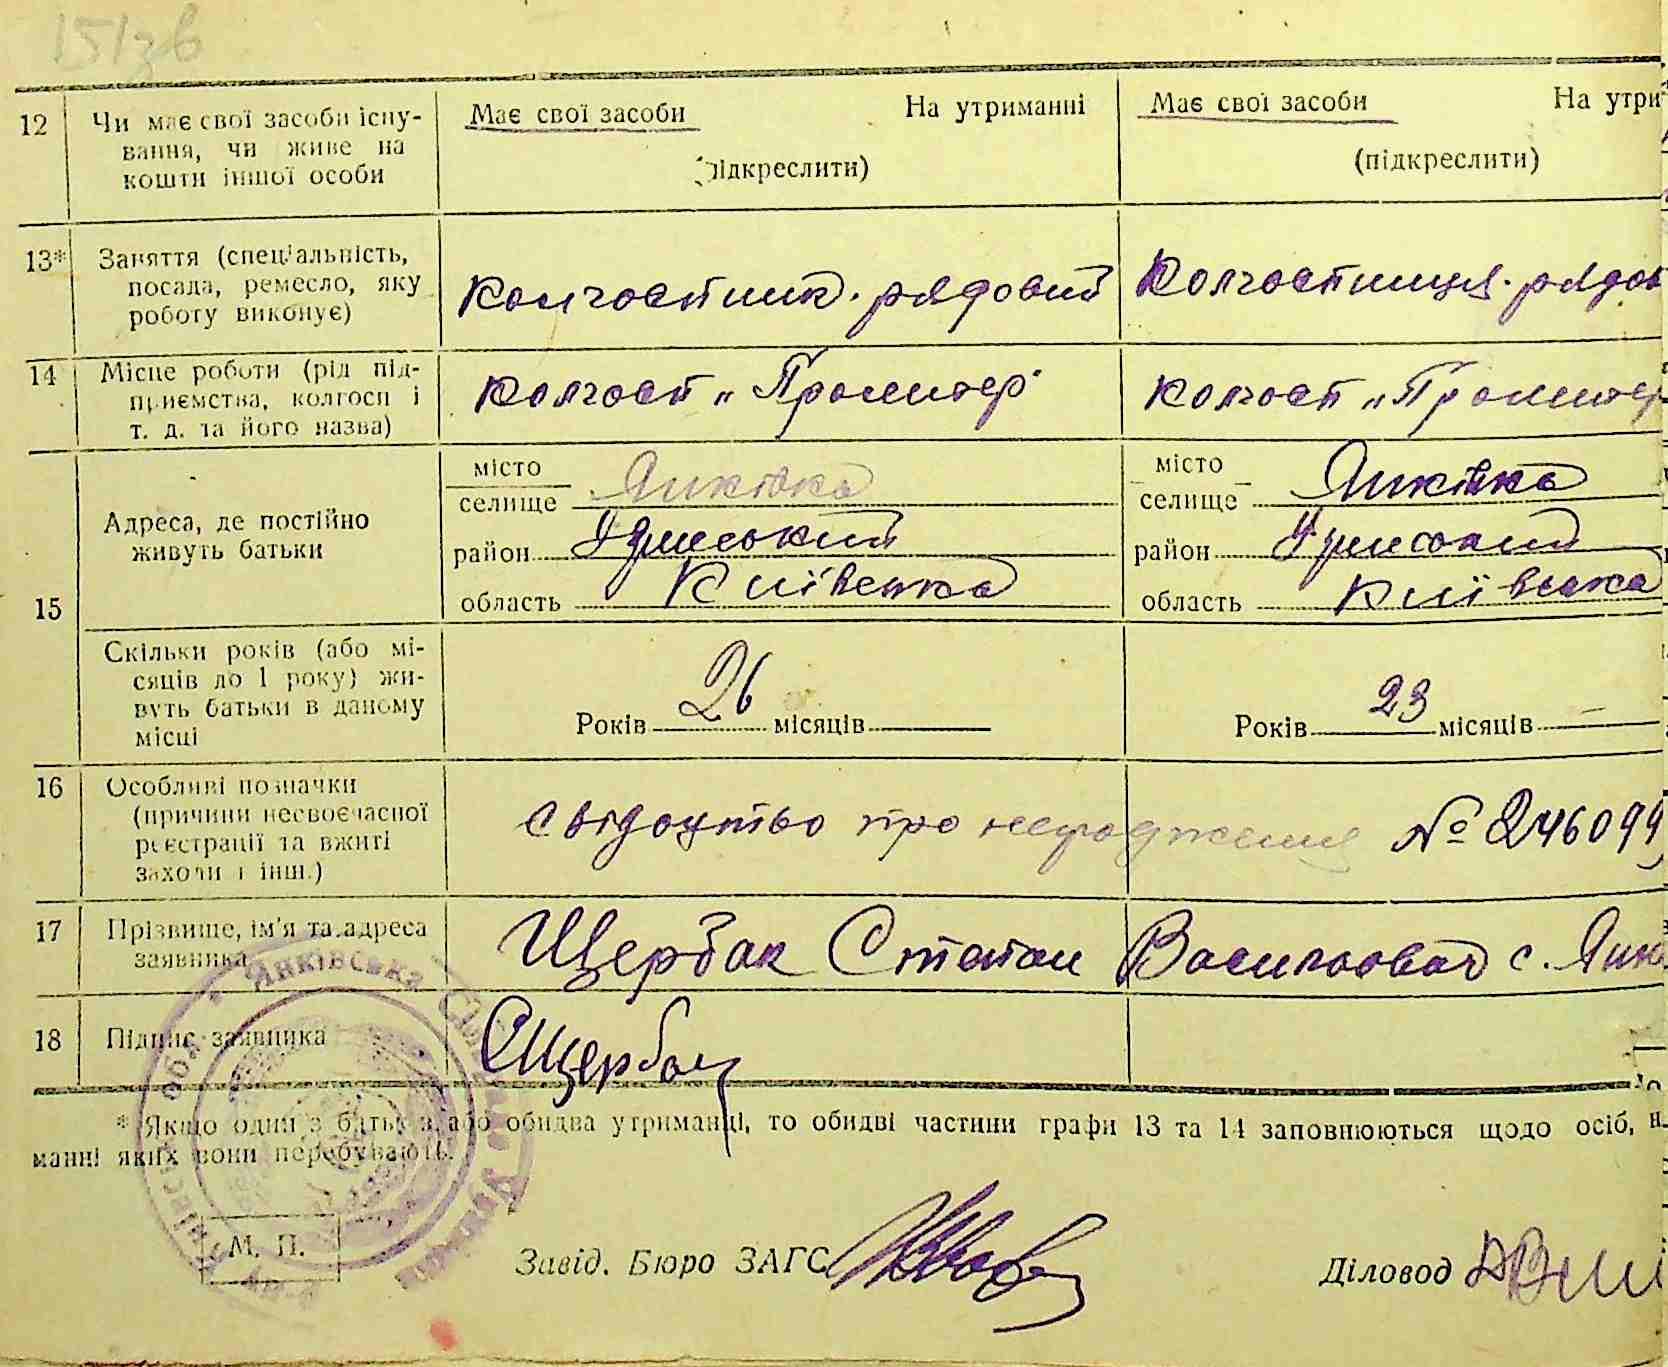 151зв
12 Чи має свої засоби існу-
вання, чи живе на
кошти іншої особи
Має свої засоби На утриманні
(підкреслити)
Має свої засоби На утри
(підкреслити)
13* Заняття (спеціальність,
посада, ремесло, яку
роботу виконує)
Колгоспник. рядовий
Колгоспниця. рядов
14 Місце роботи (рід під-
приємства, колгосп і
т. д. та його назва)
Колгосп „Пролитер"
Колгосп „Пролитер
15
Адреса, де постійно
живуть батьки
місто
селище Янківка
район
область Київська
місто
селище Янківка
район
область Київська
Скільки років (або мі-
сяців до 1 року) жи-
вуть батьки в даному
місці
Років 26 місяців
Років 23 місяців —
16 Особливі позначки
(причини несвоєчасної
реєстрації та вжиті
заходи і інш.)
свідоцтво про народження № 246099
17 Прізвище, ім'я та адреса
заявника
Щербак Степан Васильович с. Янк
18 Підпис заявника
СЩербак
* Якщо один з батьків або обидва утриманці, то обидві частини графи 13 та 14 заповнюються щодо осіб, н
манні яких вони перебувають.
Янківська
М. П.
Завід. Бюро ЗАГС
Діловод